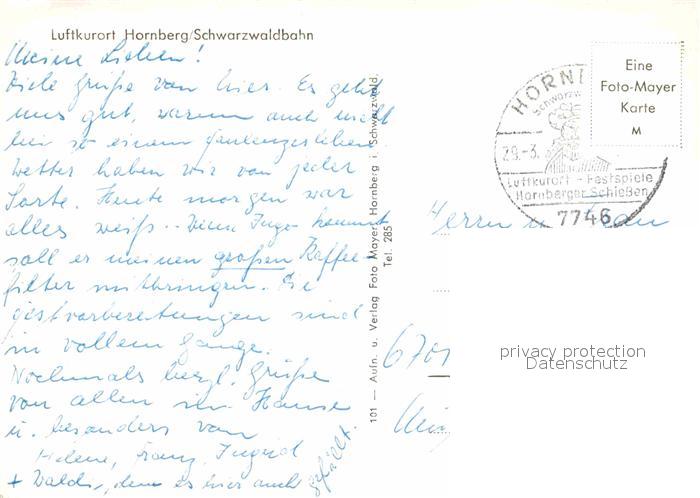 Luftkurort Hornberg/Schwarzwaldbahn
Meine Lieben!
Viele Grüße von hier. Es geht
uns gut, warum auch nicht
bei so einem Faulenzerleben.
Wetter haben wir von jeder
Sorte. Heute morgen war
alles weiß. Wenn Ingo kommt
soll er meinen großen Kaffee-
filter mitbringen. Die
Festvorbereitungen sind
in vollem Gange.
Nochmals herzl. Grüße
von allen im Hause
u. besonders von
Helene, Franz, Ingrid
+ Waldi, dem es hier auch
gefällt.
101 — Aufn. u. Verlag Foto Mayer, Hornberg i. Schwarzwald.
Tel. 285
Eine
Foto-Mayer
Karte
M
HORN
Schwarzw
29.-3.
Luftkurort - Festspiele
Hornberger Schießen
7746
Herrn u. Frau
6701
privacy protection
Datenschutz